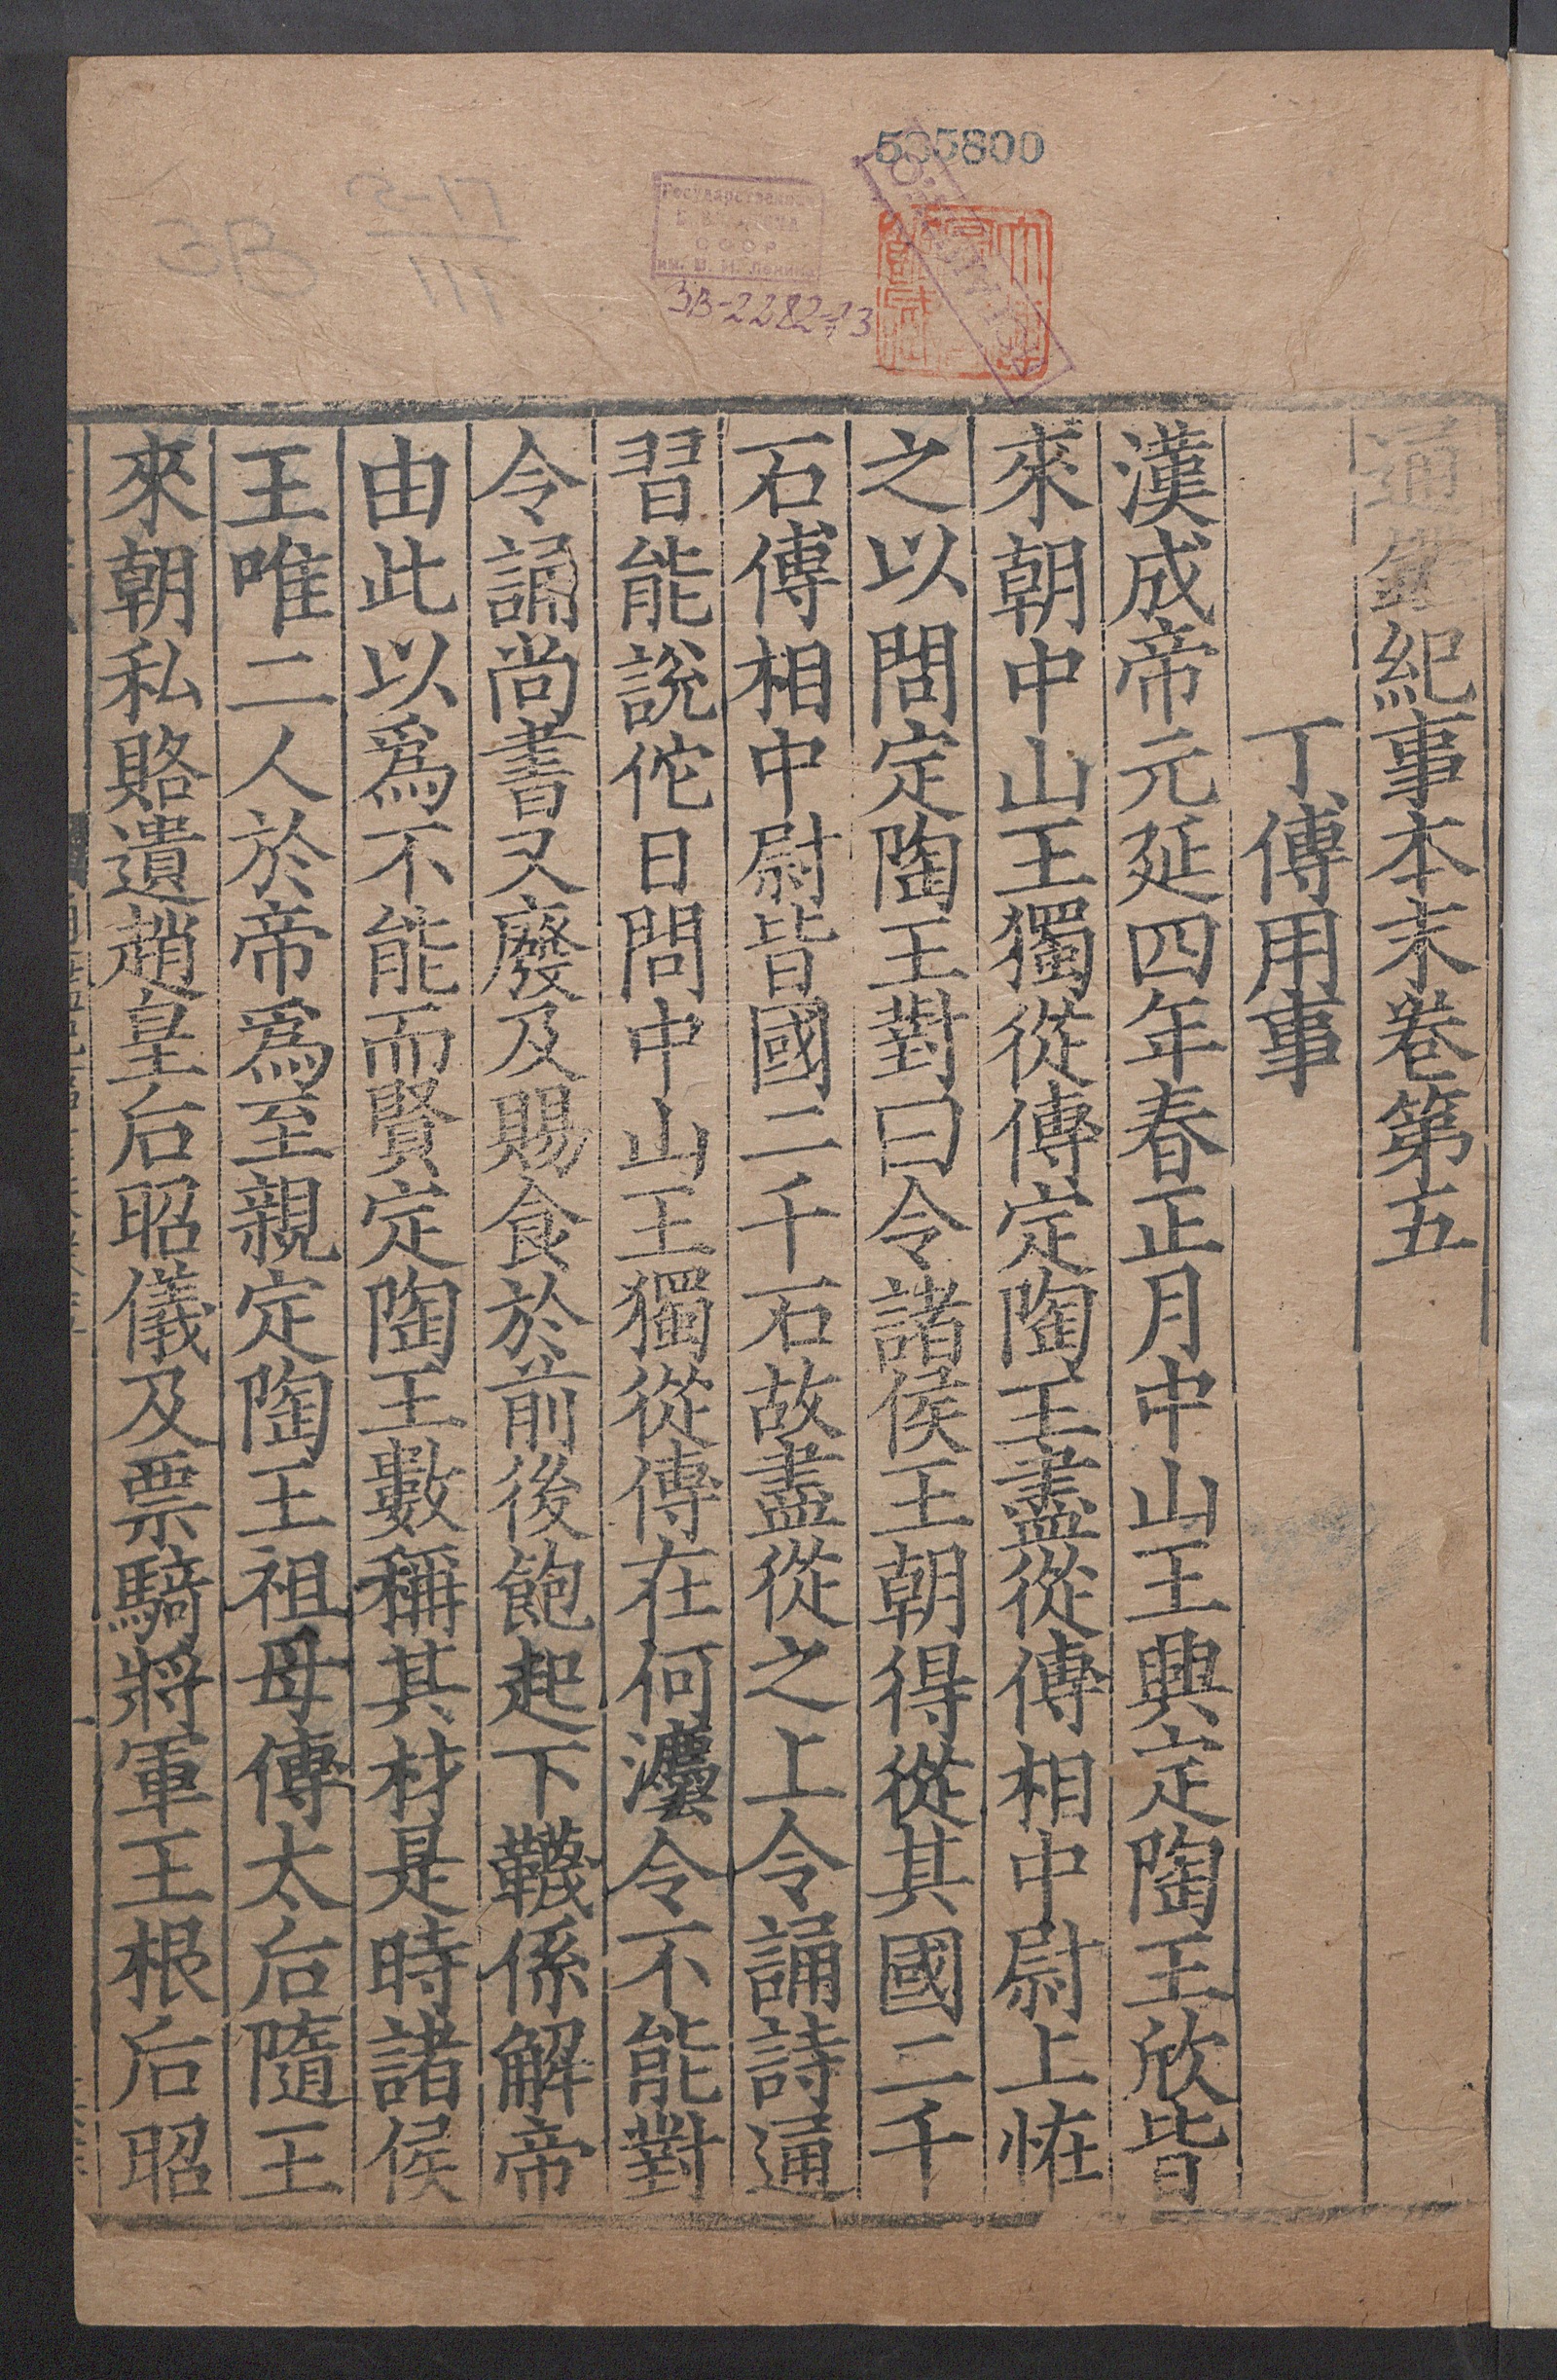 535800
17-5
111
ЗВ-2282-13
通鑑紀事本末卷第五
丁傅用事
漢成帝元延四年春正月中山王興定陶王欣皆
來朝中山王獨從傅定陶王盡從傅相中尉上恠
之以問定陶王對曰令諸侯王朝得從其國二千
石傅相中尉皆國二千石故盡從之上令誦詩通
習能說佗日問中山王獨從傅在何灋令不能對
令誦尚書又廢及賜食於前後飽起下韈係解帝
由此以爲不能而賢定陶王數稱其材是時諸侯
王唯二人於帝爲至親定陶王祖母傅太后隨王
來朝私賂遺趙皇后昭儀及票騎將軍王根后昭